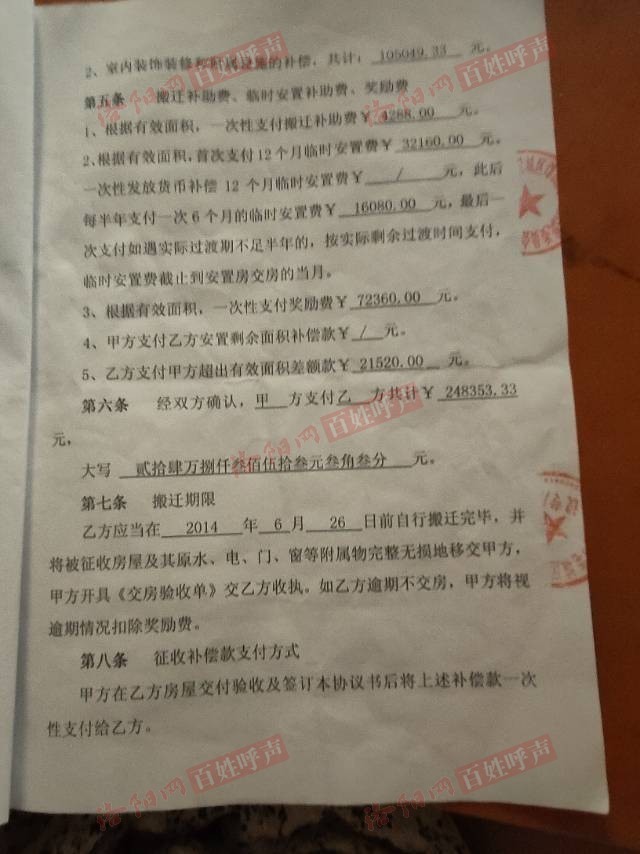 2、室内装饰装修和附属设施的补偿，共计：105049.33 元。
第五条 搬迁补助费、临时安置补助费、奖励费
1、根据有效面积，一次性支付搬迁补助费￥ 4288.00 元。
2、根据有效面积，首次支付12个月临时安置费￥ 32160.00 元，
一次性发放货币补偿 12 个月临时安置费￥ / 元，此后
每半年支付一次6个月的临时安置费￥ 16080.00 元，最后一
次支付如遇实际过渡期不足半年的，按实际剩余过渡时间支付，
临时安置费截止到安置房交房的当月。
3、根据有效面积，一次性支付奖励费￥ 72360.00 元。
4、甲方支付乙方安置剩余面积补偿款￥ / 元。
5、乙方支付甲方超出有效面积差额款￥ 21520.00 元。
第六条 经双方确认，甲 方支付乙 方共计￥ 248353.33
元，
大写 贰拾肆万捌仟叁佰伍拾叁元叁角叁分 元。
第七条 搬迁期限
乙方应当在 2014 年 6 月 26 日前自行搬迁完毕，并
将被征收房屋及其原水、电、门、窗等附属物完整无损地移交甲方，
甲方开具《交房验收单》交乙方收执。如乙方逾期不交房，甲方将视
逾期情况扣除奖励费。
第八条 征收补偿款支付方式
甲方在乙方房屋交付验收及签订本协议书后将上述补偿款一次
性支付给乙方。
洛阳网 百姓呼声
洛阳网 百姓呼声
洛阳网 百姓呼声
洛阳网 百姓呼声
洛阳网 百姓呼声